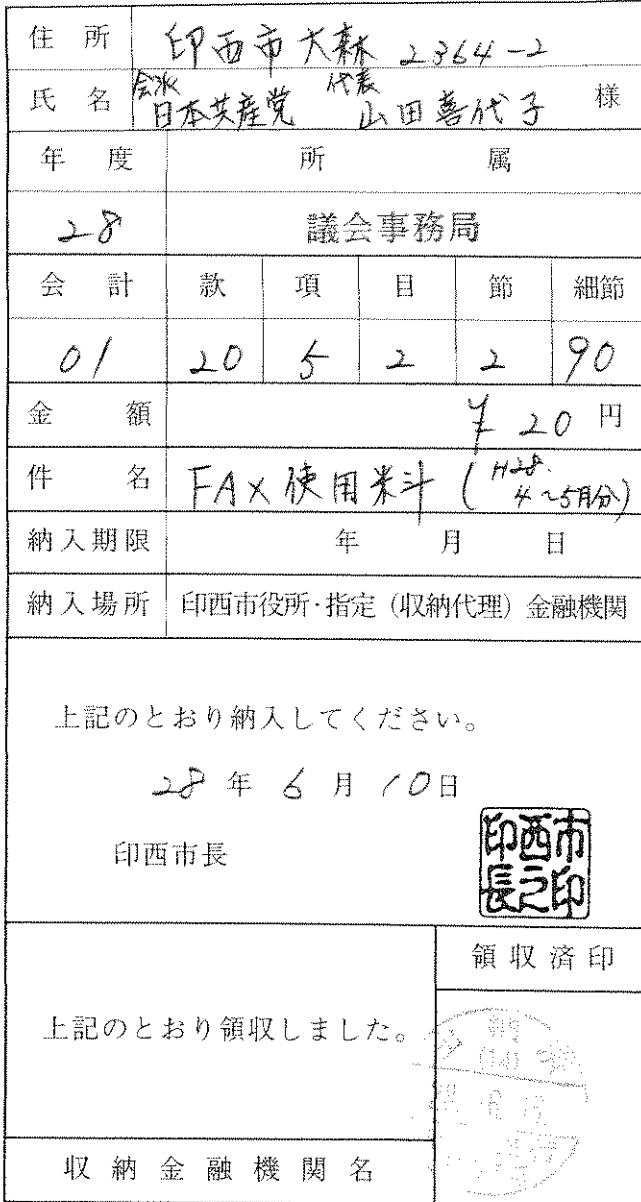 住所 印西市大森 2364-2
氏名 会派 日本共産党 代表 山田喜代子 様
年度 所属
28 議会事務局
会計 款 項 目 節 細節
01 20 5 2 2 90
金額 ¥20円
件名 FAX使用料 (H28. 4~5月分)
納入期限 年 月 日
納入場所 印西市役所・指定(収納代理)金融機関
上記のとおり納入してください。
28年6月10日
印西市長
印西市長之印
領収済印
上記のとおり領収しました。
収納金融機関名